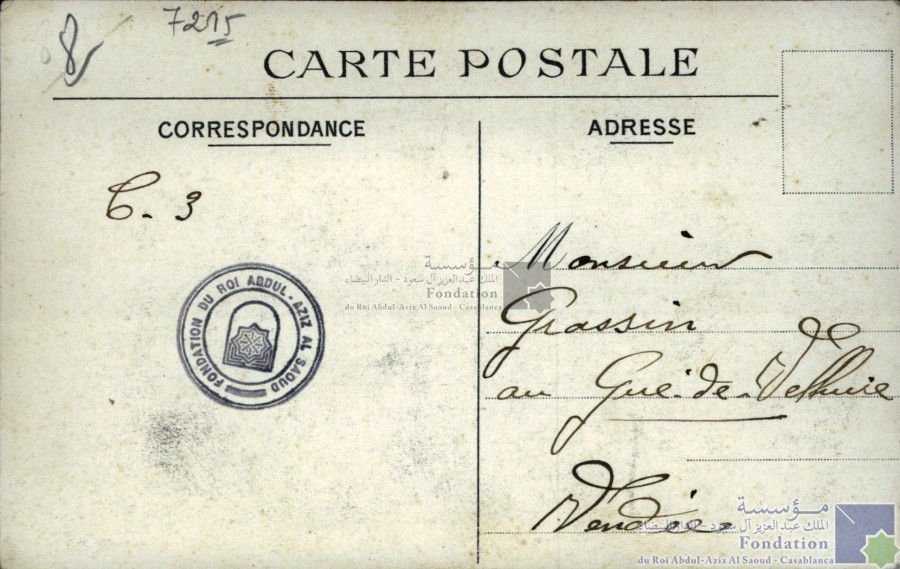 8
7215
CARTE POSTALE
CORRESPONDANCE
ADRESSE
C. 3
FONDATION DU ROI ABDUL-AZIZ AL SAOUD
Monsieur
Grassin
au Gué-de-Velluire
Vendée
مؤسسة
الملك عبد العزيز آل سعود - الدار البيضاء
Fondation
du Roi Abdul-Aziz Al Saoud - Casablanca
مؤسسة
الملك عبد العزيز آل سعود - الدار البيضاء
Fondation
du Roi Abdul-Aziz Al Saoud - Casablanca